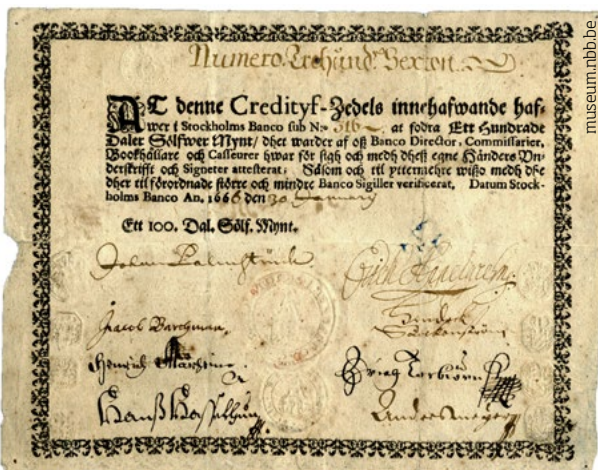 Numero. Trehund? Sexton.
AT denne Credityf-Zedels innehafwande haf-
wer i Stockholms Banco sub N:o 316 at fodra Ett Hundrade
Daler Sölfwer Mynt/ dhet warder af oß Banco Director, Commissarier,
Bookhållare och Casseurer hwar för sigh och medh dheß egne Händers Un-
derskrifft och Signeter attesterat, Såsom och til ytterme­hre wißo medh dhe
dher til förordnade större och mindre Banco Sigiller verificerat, Datum Stock-
holms Banco An. 1666 den 30 January
Ett 100. Dal. Sölf. Mynt.
Johan Palmstruch
Jacob Barchman.
Hans
Anders Meyer
museum.nbb.be